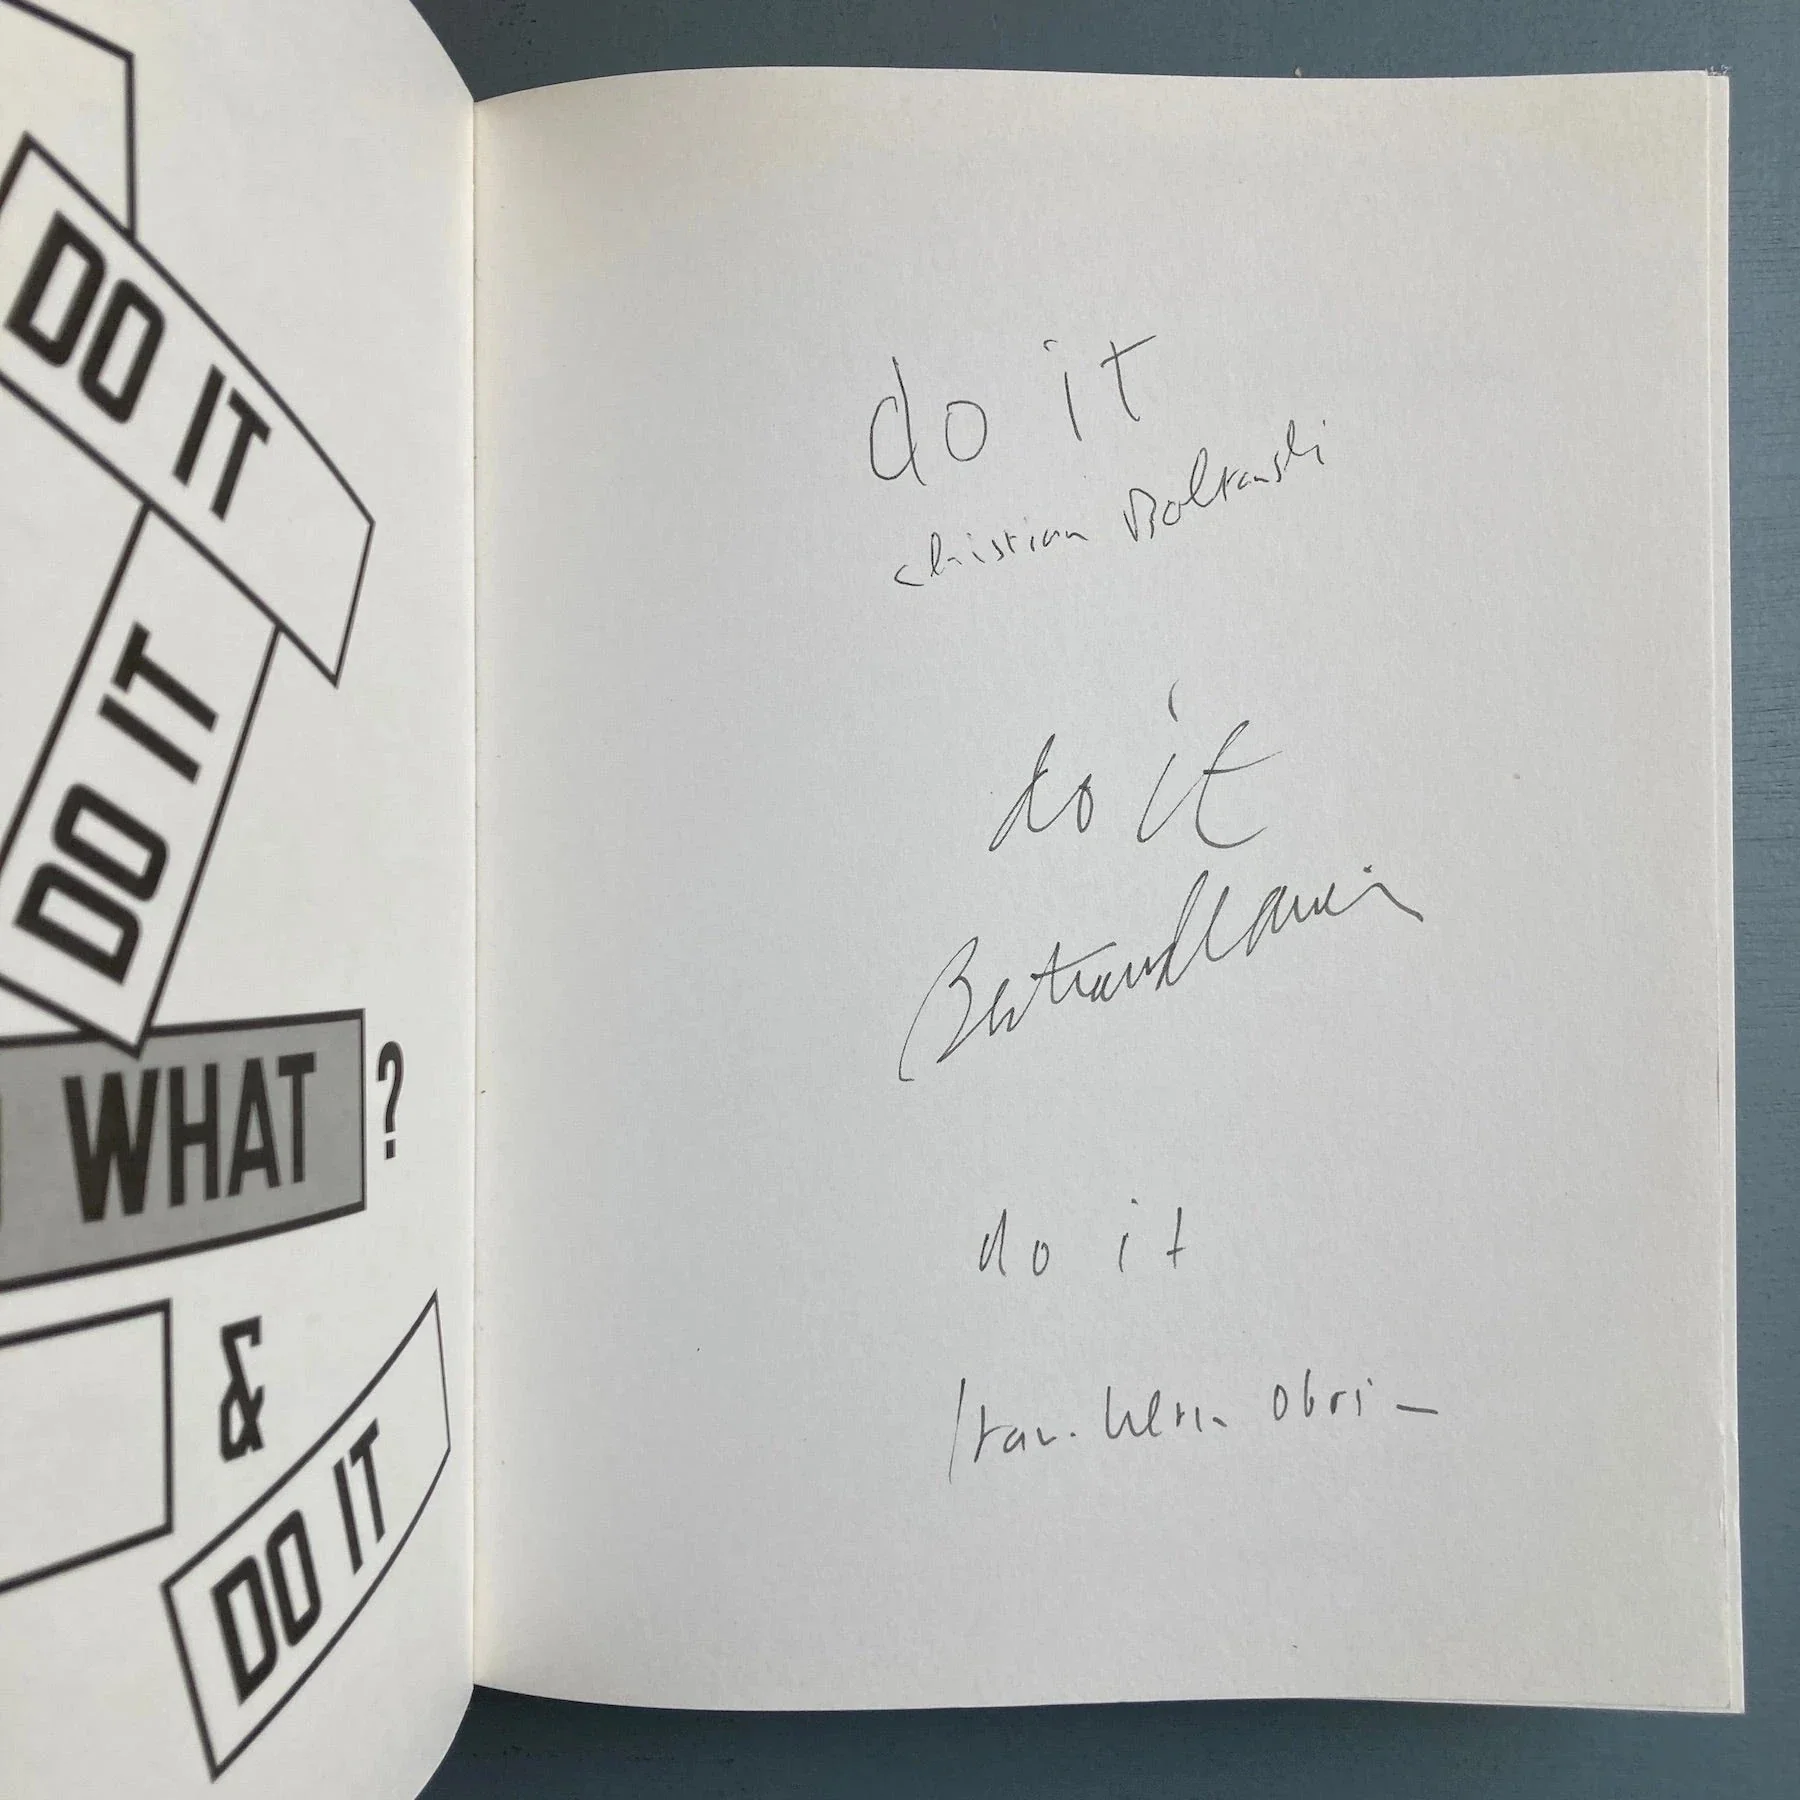 DO IT
DO IT
WHAT?
&
DO IT
do it
Christian Boltanski
do it
Bertrand Lavier
do it
Hans-Ulrich Obrist